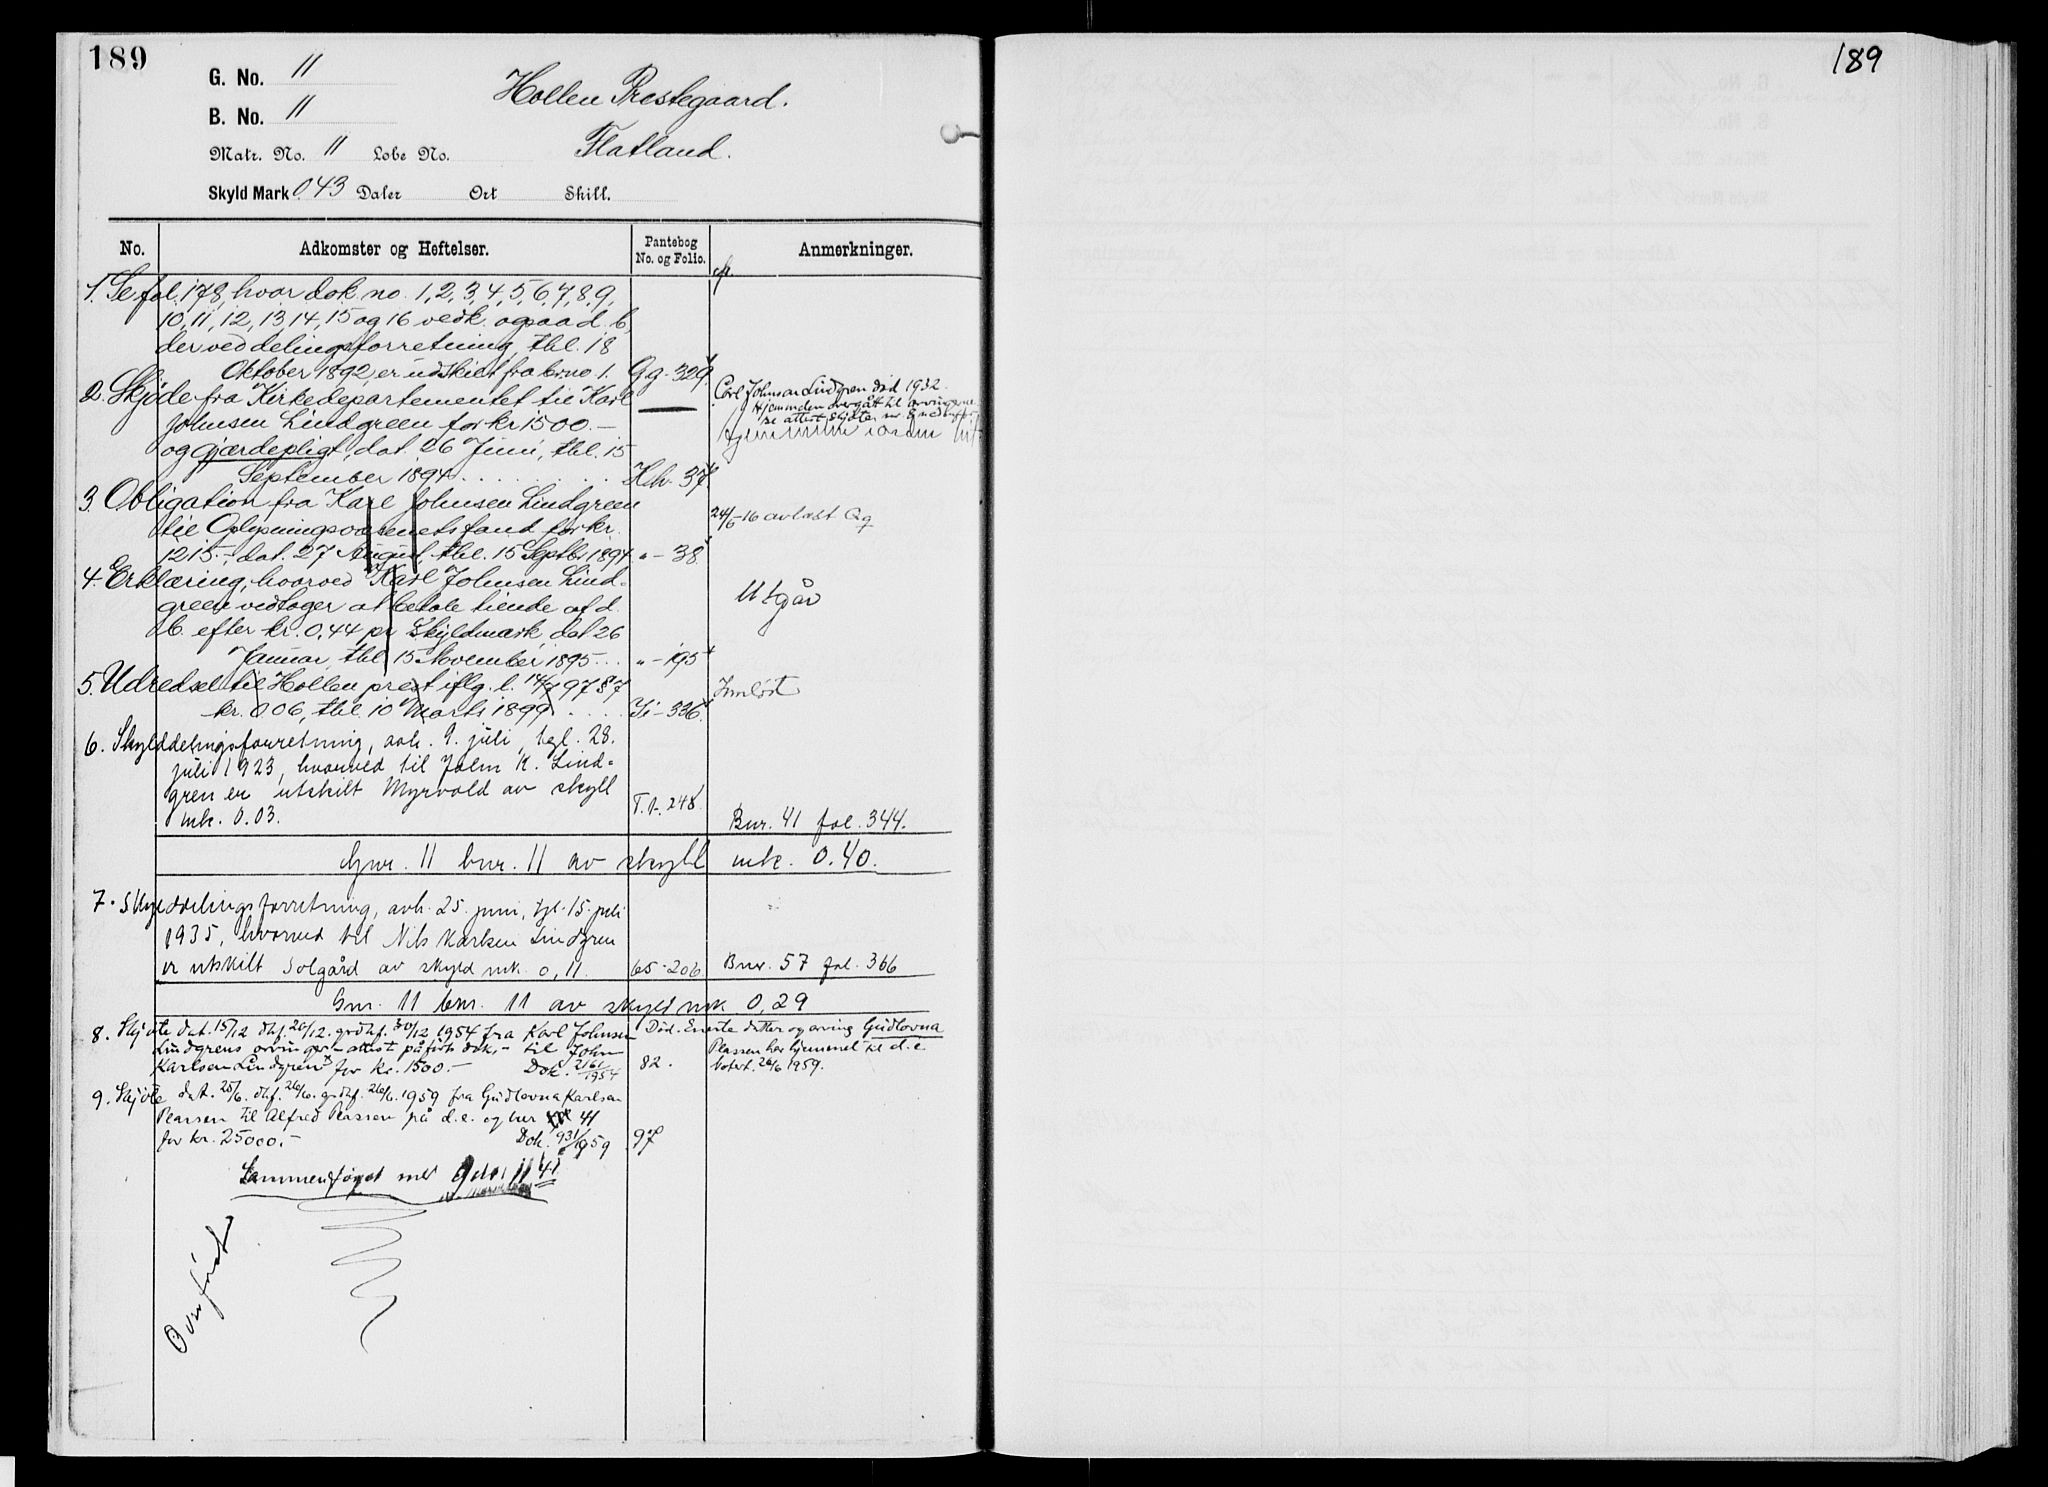 189
G. No. 11
Hollen Prestegaard.
B. No. 11
Matr. No. 11 Løbe No.
Flatland.
Skyld Mark 0.43 Daler Ort Skill.
No. Adkomster og Heftelser. Pantebog No. og Folio. Anmerkninger.
1. Se fol. 178, hvor dok. no. 1, 2, 3, 4, 5, 6, 7, 8, 9,
10, 11, 12, 13, 14, 15 og 16 vedk. ogsaa d. b,
der ved delingsforretning, thl. 18
Oktober 1892, er udskilt fra br.no 1. Gg-329
2. Skjøde fra Kirkedepartementet til Karl
Johnsen Lindgreen for kr 1500.-
og gjærdepligt, dat. 26 Juni, thl. 15
September 1894. Hh-37
Carl Johnsen Lindgren død 1932.
Hjemmelen overgått til arvingerne
se attest skjøte nr. 8 nedenfor
3. Obligation fra Karl Johnsen Lindgreen
til Oplysningsvæsenets fond for kr.
1215.-, dat. 27 August, thl. 15 Septbr. 1894. " - 38
24/5-16 avlæst Qq
4. Erklæring, hvorved Karl Johnsen Lind-
green vedtager at betale tiende af d.
b. efter kr. 0.44 pr. Skyldmark, dat 26
Januar, thl. 15 November 1895. " - 195
Utgår
5. Udredsel til Hollen prest iflg. l. 14/7 97 § 7
kr. 0.06, thl. 10 Marts 1899. Ii-336
Innløst
6. Skylddelingsforretning, avh. 9. juli, tgl. 28.
juli 1923, hvorved til John K. Lind-
gren er utskilt Myrvold av skyld
mk. 0.03. 248 Bnr. 41 fol. 344.
Gnr. 11 bnr. 11 av skyld mk. 0.40.
7. Skylddelingsforretning, avh. 25. juni, tgl. 15. juli
1935, hvorved til Nils Karlsen Lindgren
er utskilt Solgård av skyld mk. 0,11. 65-206 Bnr. 57 fol. 366
Gnr. 11 bnr. 11 av skyld mk 0,29
8. Skjøte dat. 15/12 dhf. 20/12. grdhf. 30/12 1954 fra Karl Johnsen
Lindgrens arvinger - attest påført dok. - til John
Karlsen Lindgren x for kr. 1500.- Dok. 2161/1954 82.
Død. Eneste datter og arving Gudlovna
Plassen har hjemmel til d.e.
Notert. 26/6 1959.
9. Skjøte dat. 25/6. dhf. 26/6. grdhf. 26/6. 1959 fra Gudlovna Karlsen
Plassen til Alfred Plassen på d.e. og bnr 41
for kr. 25000.- Dok. 931/1959 97
Sammenføyet med gnr. 11 41
Overført
189